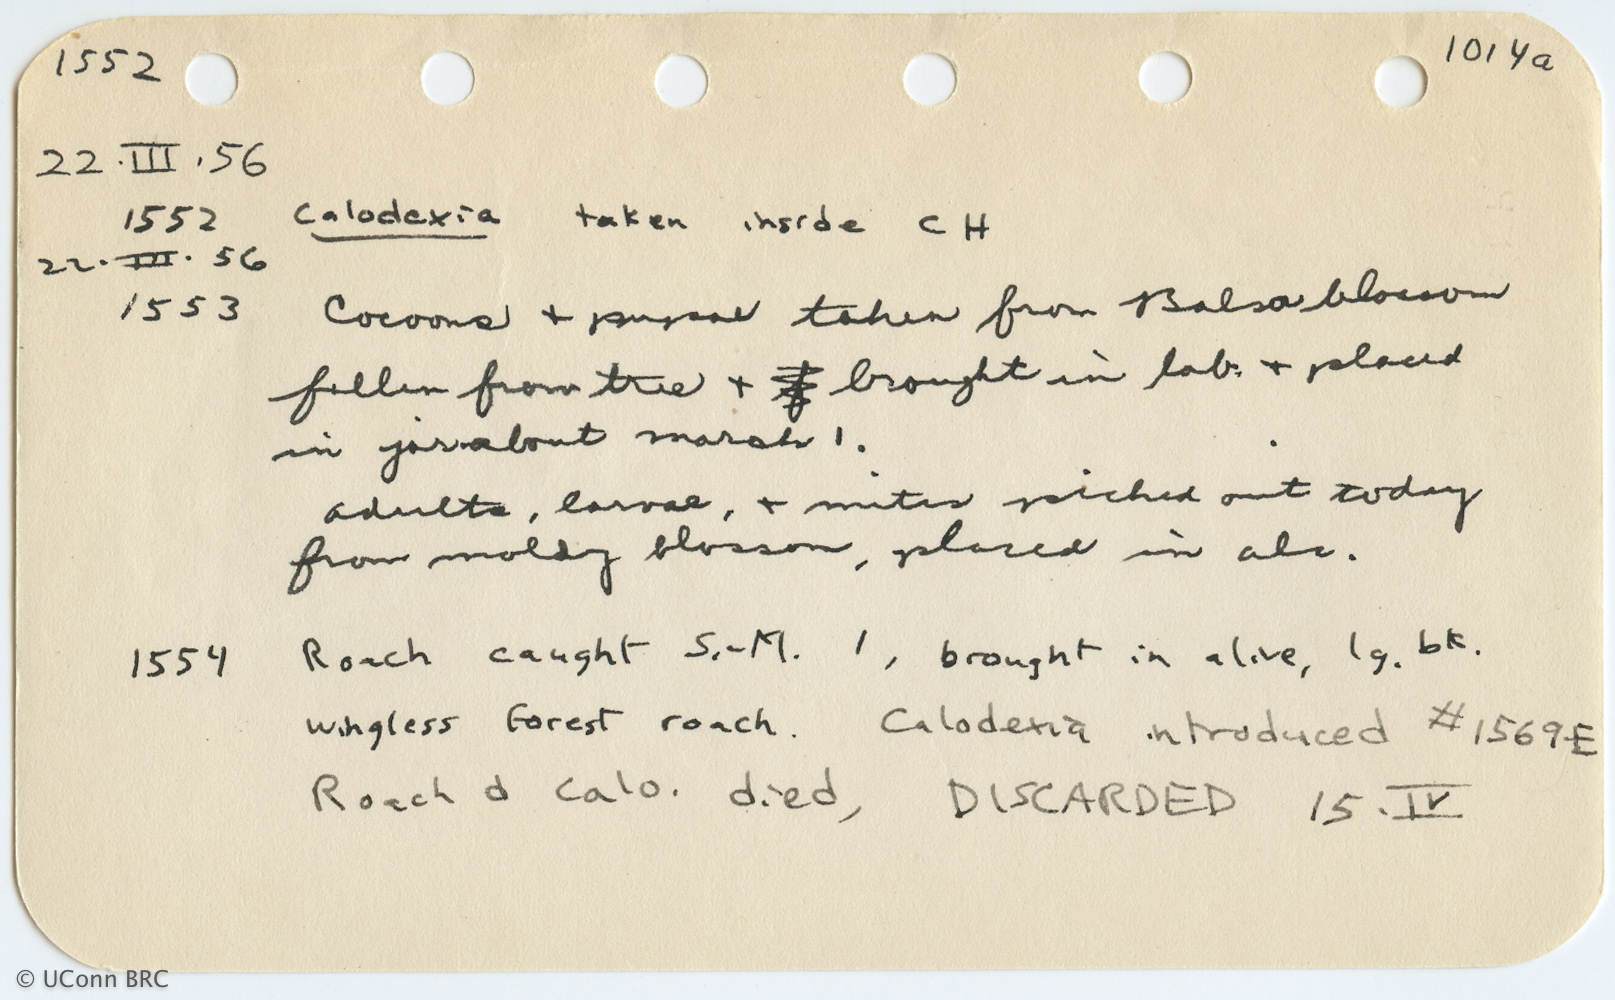 1552 1014a
22.III.56
1552 Calodexia taken inside CH
22.III.56
1553 Cocoons + pupae taken from Balsa blossom
fallen from tree + brought in lab. + placed
in jar about march 1.
adults, larvae, + mites picked out today
from moldy blossom, placed in alc.
1554 Roach caught S.-M. 1, brought in alive, lg. bk.
wingless forest roach. Calodexia introduced #1569E
Roach & Calo. died, DISCARDED 15.IV
© UConn BRC